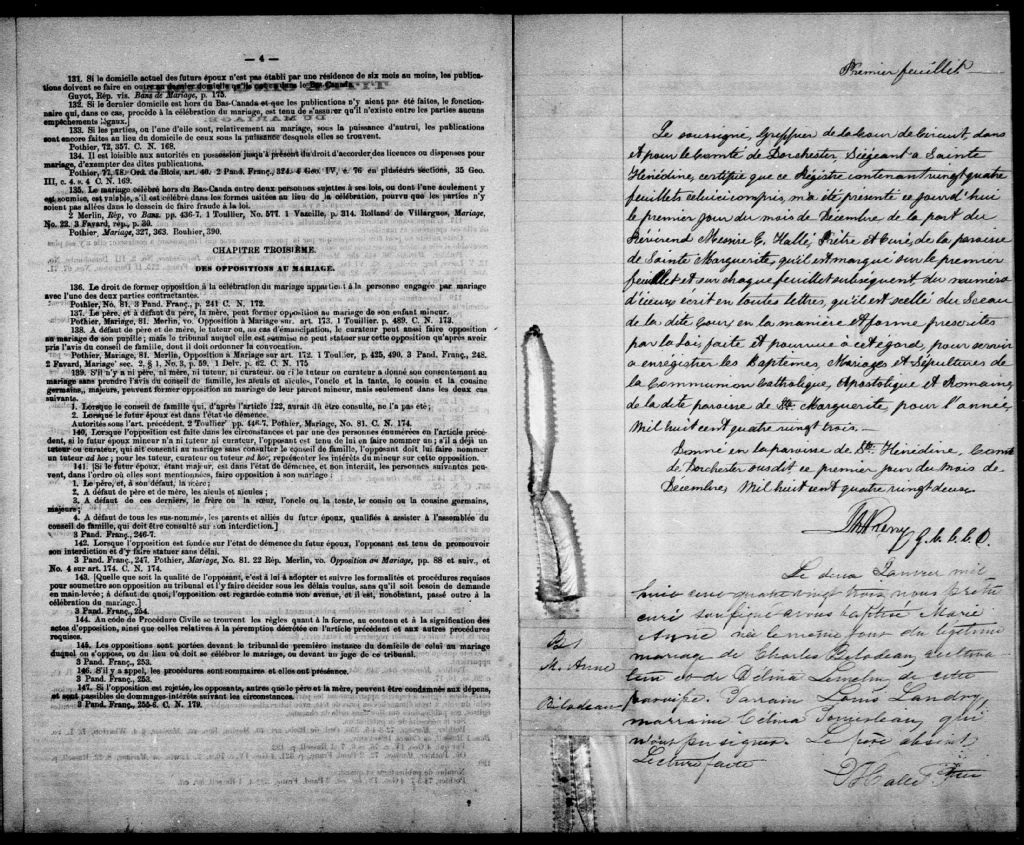 — 4 —
131. Si le domicile actuel des futurs époux n'est pas établi par une résidence de six mois au moins, les publica-
tions doivent se faire en outre au dernier domicile qu'ils ont eu dans le Bas-Canada.
Guyot, Rép. vis. Bans de Mariage, p. 175.
132. Si le dernier domicile est hors du Bas-Canada et que les publications n'y aient pas été faites, le fonction-
naire qui, dans ce cas, procède à la célébration du mariage, est tenu de s'assurer qu'il n'existe entre les parties aucuns
empêchements légaux.]
133. Si les parties, ou l'une d'elle sont, relativement au mariage, sous la puissance d'autrui, les publications
sont encore faites au lieu du domicile de ceux sous la puissance desquels elles se trouvent.
Pothier, 72, 357. C. N. 168.
134. Il est loisible aux autorités en possession jusqu'à présent du droit d'accorder des licences ou dispenses pour
mariage, d'exempter des dites publications.
Pothier, 77, 78. Ord. de Blois, art. 40. 2 Pand. Franç., 324. 4 Geo. IV, c. 76 en plusieurs sections, 35 Geo.
III, c. 4. s. 4 C. N. 169.
135. Le mariage célébré hors du Bas-Canada entre deux personnes sujettes à ses lois, ou dont l'une seulement y
est soumise, est valable, s'il est célébré dans les formes usitées au lieu de la célébration, pourvu que les parties n'y
soient pas allées dans le dessein de faire fraude à la loi.
2 Merlin, Rép, vo Bans. pp. 436-7. 1 Toullier, No. 577. 1 Vazeille, p. 314. Rolland de Villargues, Mariage,
No. 22. 3 Favard, rép., p. 30.
Pothier, Mariage, 327, 363. Rouhier, 390.
CHAPITRE TROISIÈME.
DES OPPOSITIONS AU MARIAGE.
136. Le droit de former opposition à la célébration du mariage appartient à la personne engagée par mariage
avec l'une des deux parties contractantes.
Pothier, No. 81. 3 Pand. Franç., p. 241 C. N. 172.
137. Le père, et à défaut du père, la mère, peut former opposition au mariage de son enfant mineur.
Pothier, Mariage, 81. Merlin, vo. Opposition à Mariage sur. art. 173. 1 Touillier. p. 489. C. N. 173.
138. A défaut de père et de mère, le tuteur ou, au cas d'émancipation, le curateur peut aussi faire opposition
au mariage de son pupille; mais le tribunal auquel elle est soumise ne peut statuer sur cette opposition qu'après avoir
pris l'avis du conseil de famille, dont il doit ordonner la convocation.
Pothier, Mariage, 81. Merlin, Opposition à Mariage sur art. 172. 1 Toullier, p. 425, 490. 3 Pand. Franç., 248.
2 Favard, Mariage sec. 2. § 1. No. 3, p. 59. 1 Delv. p. 62. C. N. 175
139. S'il n'y a ni père, ni mère, ni tuteur, ni curateur. ou si le tuteur ou curateur a donné son consentement au
mariage sans prendre l'avis du conseil de famille, les aïeuls et aïeules, l'oncle et la tante, le cousin et la cousine
germains, majeurs, peuvent former opposition au mariage de leur parent mineur, mais seulement dans les deux cas
suivants.
1. Lorsque le conseil de famille qui, d'après l'article 122, aurait dû être consulté, ne l'a pas été;
2. Lorsque le futur époux est dans l'état de démence.
Autorités sous l'art. précédent. 2 Toullier pp. 446-7. Pothier, Mariage, No. 81. C. N. 174.
140. Lorsque l'opposition est faite dans les circonstances et par une des personnes énumérées en l'article précé-
dent, si le futur époux mineur n'a ni tuteur ni curateur, l'opposant est tenu de lui en faire nommer un; s'il a déjà un
tuteur ou curateur, qui ait consenti au mariage sans consulter le conseil de famille, l'opposant doit lui faire nommer
un tuteur ad hoc; pour les tuteur, curateur ou tuteur ad hoc, représenter les intérêts du mineur sur cette opposition.
141. [Si le futur époux, étant majeur, est dans l'état de démence, et non interdit, les personnes suivantes peu-
vent, dans l'ordre où elles sont mentionnées, faire opposition à son mariage:
1. Le père, et, à son défaut, la mère;
2. A défaut de père et de mère, les aïeuls et aïeules;
3. A défaut de ces derniers, le frère ou la sœur, l'oncle ou la tante, le cousin ou la cousine germains,
majeurs;
4. A défaut de tous les sus-nommés, les parents et alliés du futur époux, qualifiés à assister à l'assemblée du
conseil de famille, qui doit être consulté sur son interdiction.]
3 Pand. Franç., 246-7.
142. Lorsque l'opposition est fondée sur l'état de démence du futur époux, l'opposant est tenu de promouvoir
son interdiction et d'y faire statuer sans délai.
3 Pand. Franç., 247. Pothier, Mariage, No. 81. 22 Rép. Merlin, vo. Opposition au Mariage, pp. 88 et suiv., et
No. 4 sur art. 174. C. N. 174.
143. [Quelle que soit la qualité de l'opposant, c'est à lui à adopter et suivre les formalités et procédures requises
pour soumettre son opposition au tribunal et l'y faire décider sous les délais voulus, sans qu'il soit besoin de demande
en main-levée; à défaut de quoi, l'opposition est regardée comme non avenue, et il est, nonobstant, passé outre à la
célébration du mariage.]
3 Pand. Franç., 254.
144. Au code de Procédure Civile se trouvent les règles quant à la forme, au contenu et à la signification des
actes d'opposition, ainsi que celles relatives à la péremption décrétée en l'article précédent et aux autres procédures
requises.
145. Les oppositions sont portées devant le tribunal de première instance du domicile de celui au mariage
duquel on s'oppose, ou du lieu où doit se célébrer le mariage, ou devant un juge de ce tribunal.
3 Pand. Franç., 253.
146. S'il y a appel, les procédures sont sommaires et elles ont préséance.
3 Pand. Franç., 253.
147. Si l'opposition est rejetée, les opposants, autres que le père et la mère, peuvent être condamnés aux dépens,
et sont passibles de dommages-intérêts suivant les circonstances.
3 Pand. Franç., 255-6. C. N. 179.
Premier feuillet
Le soussigné, Greffier de la Cour de Circuit, dans
et pour le Comté de Dorchester, Siégeant à Sainte
Hénédine, certifie que ce Régistre contenant vingt quatre
feuillets celui ici compris, m'a été présenté ce jourd'hui
le premier jour du mois de Décembre de la part du
Révérend Messire E. Hallé, Prêtre et Curé, de la paroisse
de Sainte Marguerite, qu'il est marqué sur le premier
feuillet et sur chaque feuillet subséquent, du numéro
d'iceux écrit en toutes lettres, qu'il est scellé du Sceau
de la dite Cour, en la manière et forme prescrites
par la loi faite et pourvue à cet égard, pour servir
à enrégistrer les Baptêmes, Mariages et Sépultures de
la Communion Catholique, Apostolique et Romaine,
de la dite paroisse de Ste. Marguerite, pour l'année,
Mil huit cent quatre vingt trois.—
Donné en la paroisse de Ste. Hénédine, Comté
de Dorchester susdit ce premier jour du mois de
Décembre, Mil huit cent quatre vingt deux
B 1
M. Anne
Bilodeau
Le deux Janvier mil
huit cent quatre vingt trois nous prêtre
curé soussigné avons baptisé Marie
Anne née le même jour du légitime
mariage de Charles Bilodeau, cultiva
teur et de Délina Lemelin de cette
paroisse. Parrain Louis Landry,
marraine Célina Pomerleau, qui
n'ont pu signer. Le père absent
Lecture faite
Hallé Ptre